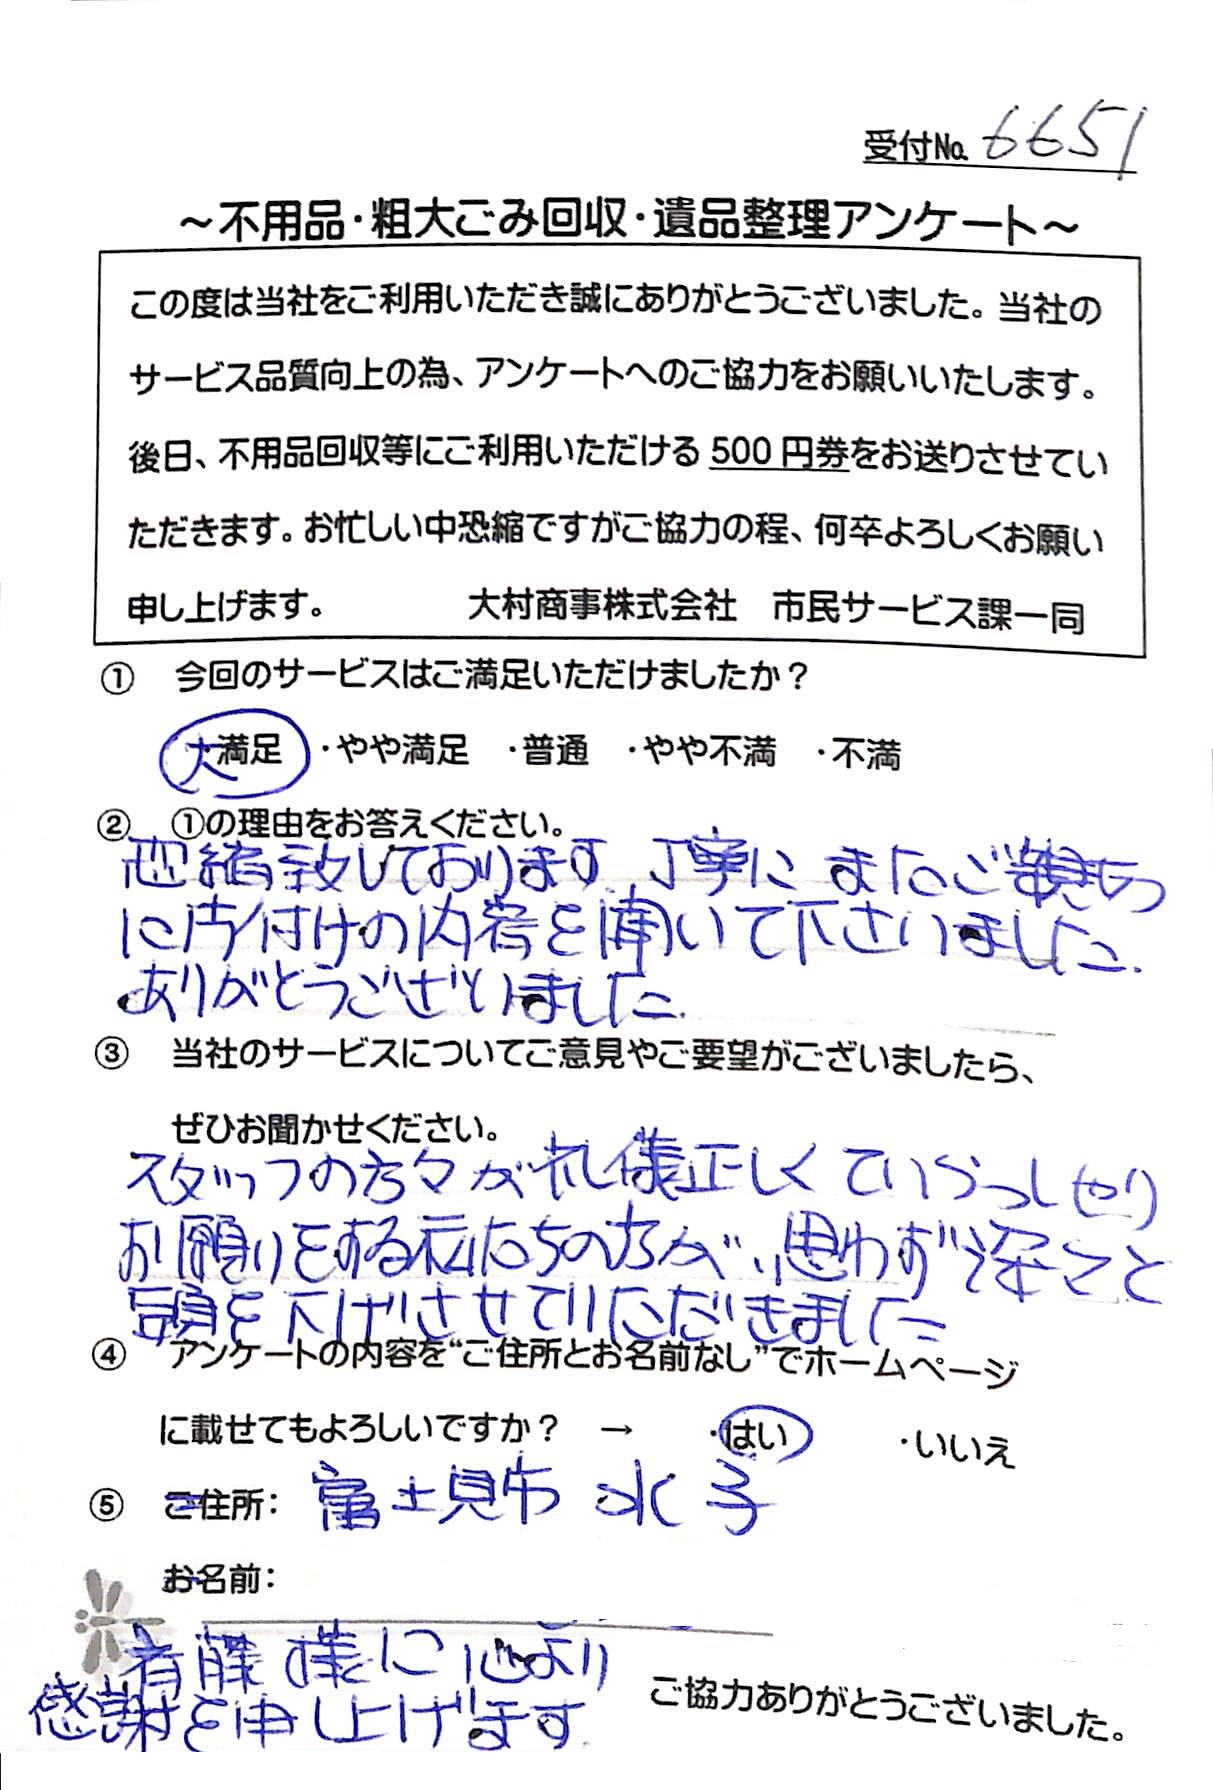 受付No. 6651
～不用品・粗大ごみ回収・遺品整理アンケート～
この度は当社をご利用いただき誠にありがとうございました。当社の
サービス品質向上の為、アンケートへのご協力をお願いいたします。
後日、不用品回収等にご利用いただける 500 円券をお送りさせてい
ただきます。お忙しい中恐縮ですがご協力の程、何卒よろしくお願い
申し上げます。 大村商事株式会社 市民サービス課一同
① 今回のサービスはご満足いただけましたか？
大満足 ・やや満足 ・普通 ・やや不満 ・不満
② ①の理由をお答えください。
恐縮致しております。丁寧に またご親切
に片付けの内容を聞いて下さいました.
ありがとうございました.
③ 当社のサービスについてご意見やご要望がございましたら、
ぜひお聞かせください。
スタッフの方々が礼儀正しくていらっしゃり
お願いをする私たちの方が、思わず深々と
頭を下げさせていただきました
④ アンケートの内容を“ご住所とお名前なし”でホームページ
に載せてもよろしいですか？ → ・はい ・いいえ
⑤ ご住所： 富士見市 水子
お名前：
斉藤様に心より
感謝を申し上げます.
ご協力ありがとうございました。